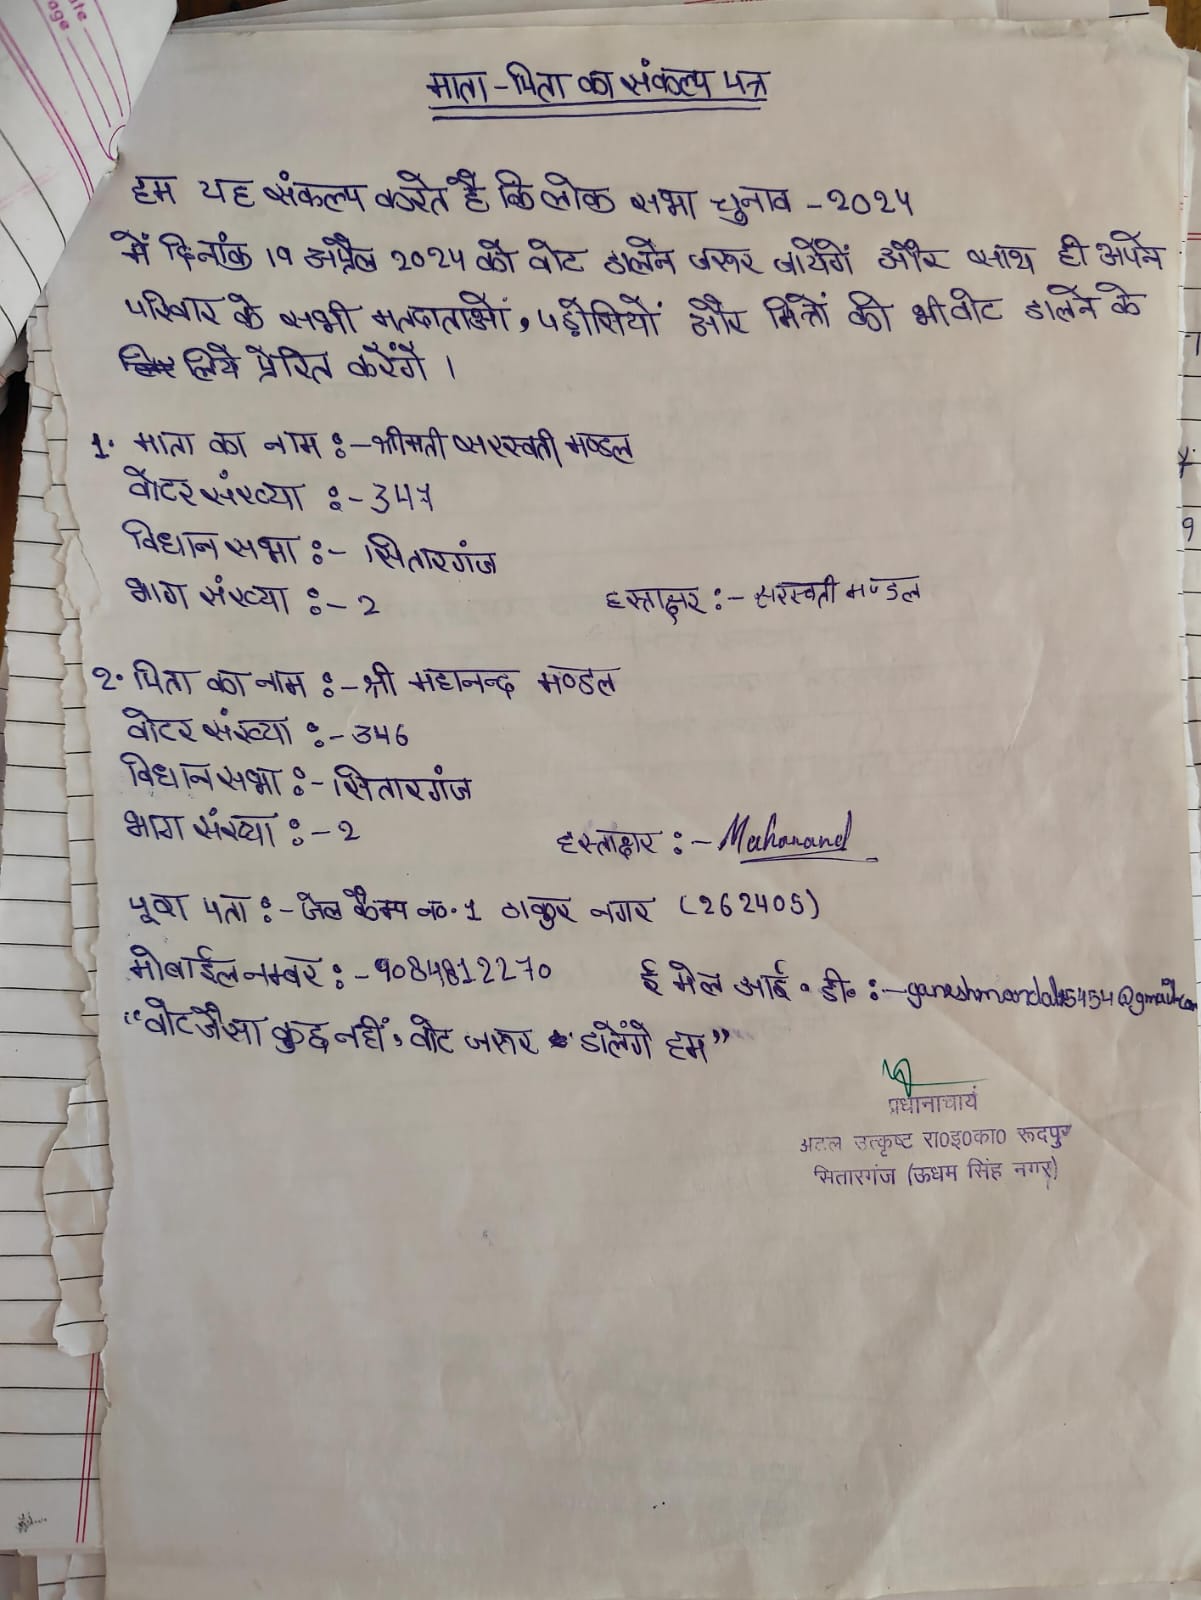 माता-पिता का संकल्प पत्र
हम यह संकल्प करते है कि लोक सभा चुनाव - 2024
में दिनांक 19 अप्रैल 2024 को वोट डालने जरूर जायेंगें और साथ ही अपने
परिवार के सभी मतदाताओं, पड़ोसियों और मित्रों को भी वोट डालने के
लिये प्रेरित करेंगें ।
1. माता का नाम :- श्रीमती सरस्वती मण्डल
वोटर संख्या :- 347
विधान सभा :- सितारगंज
भाग संख्या :- 2 हस्ताक्षर :- सरस्वती मण्डल
2. पिता का नाम :- श्री महानन्द मण्डल
वोटर संख्या :- 346
विधान सभा :- सितारगंज
भाग संख्या :- 2 हस्ताक्षर :- Mahanand
पूरा पता :- जेल कैम्प न०.1 ठाकुर नगर (262405)
मोबाईल नम्बर :- 9084812270 ई मेल आई. डी. :-
"वोट जैसा कुछ नहीं, वोट जरूर डालेंगे हम"
प्रधानाचार्य
अटल उत्कृष्ट रा०इ०का० रूदपुर
सितारगंज (ऊधम सिंह नगर)